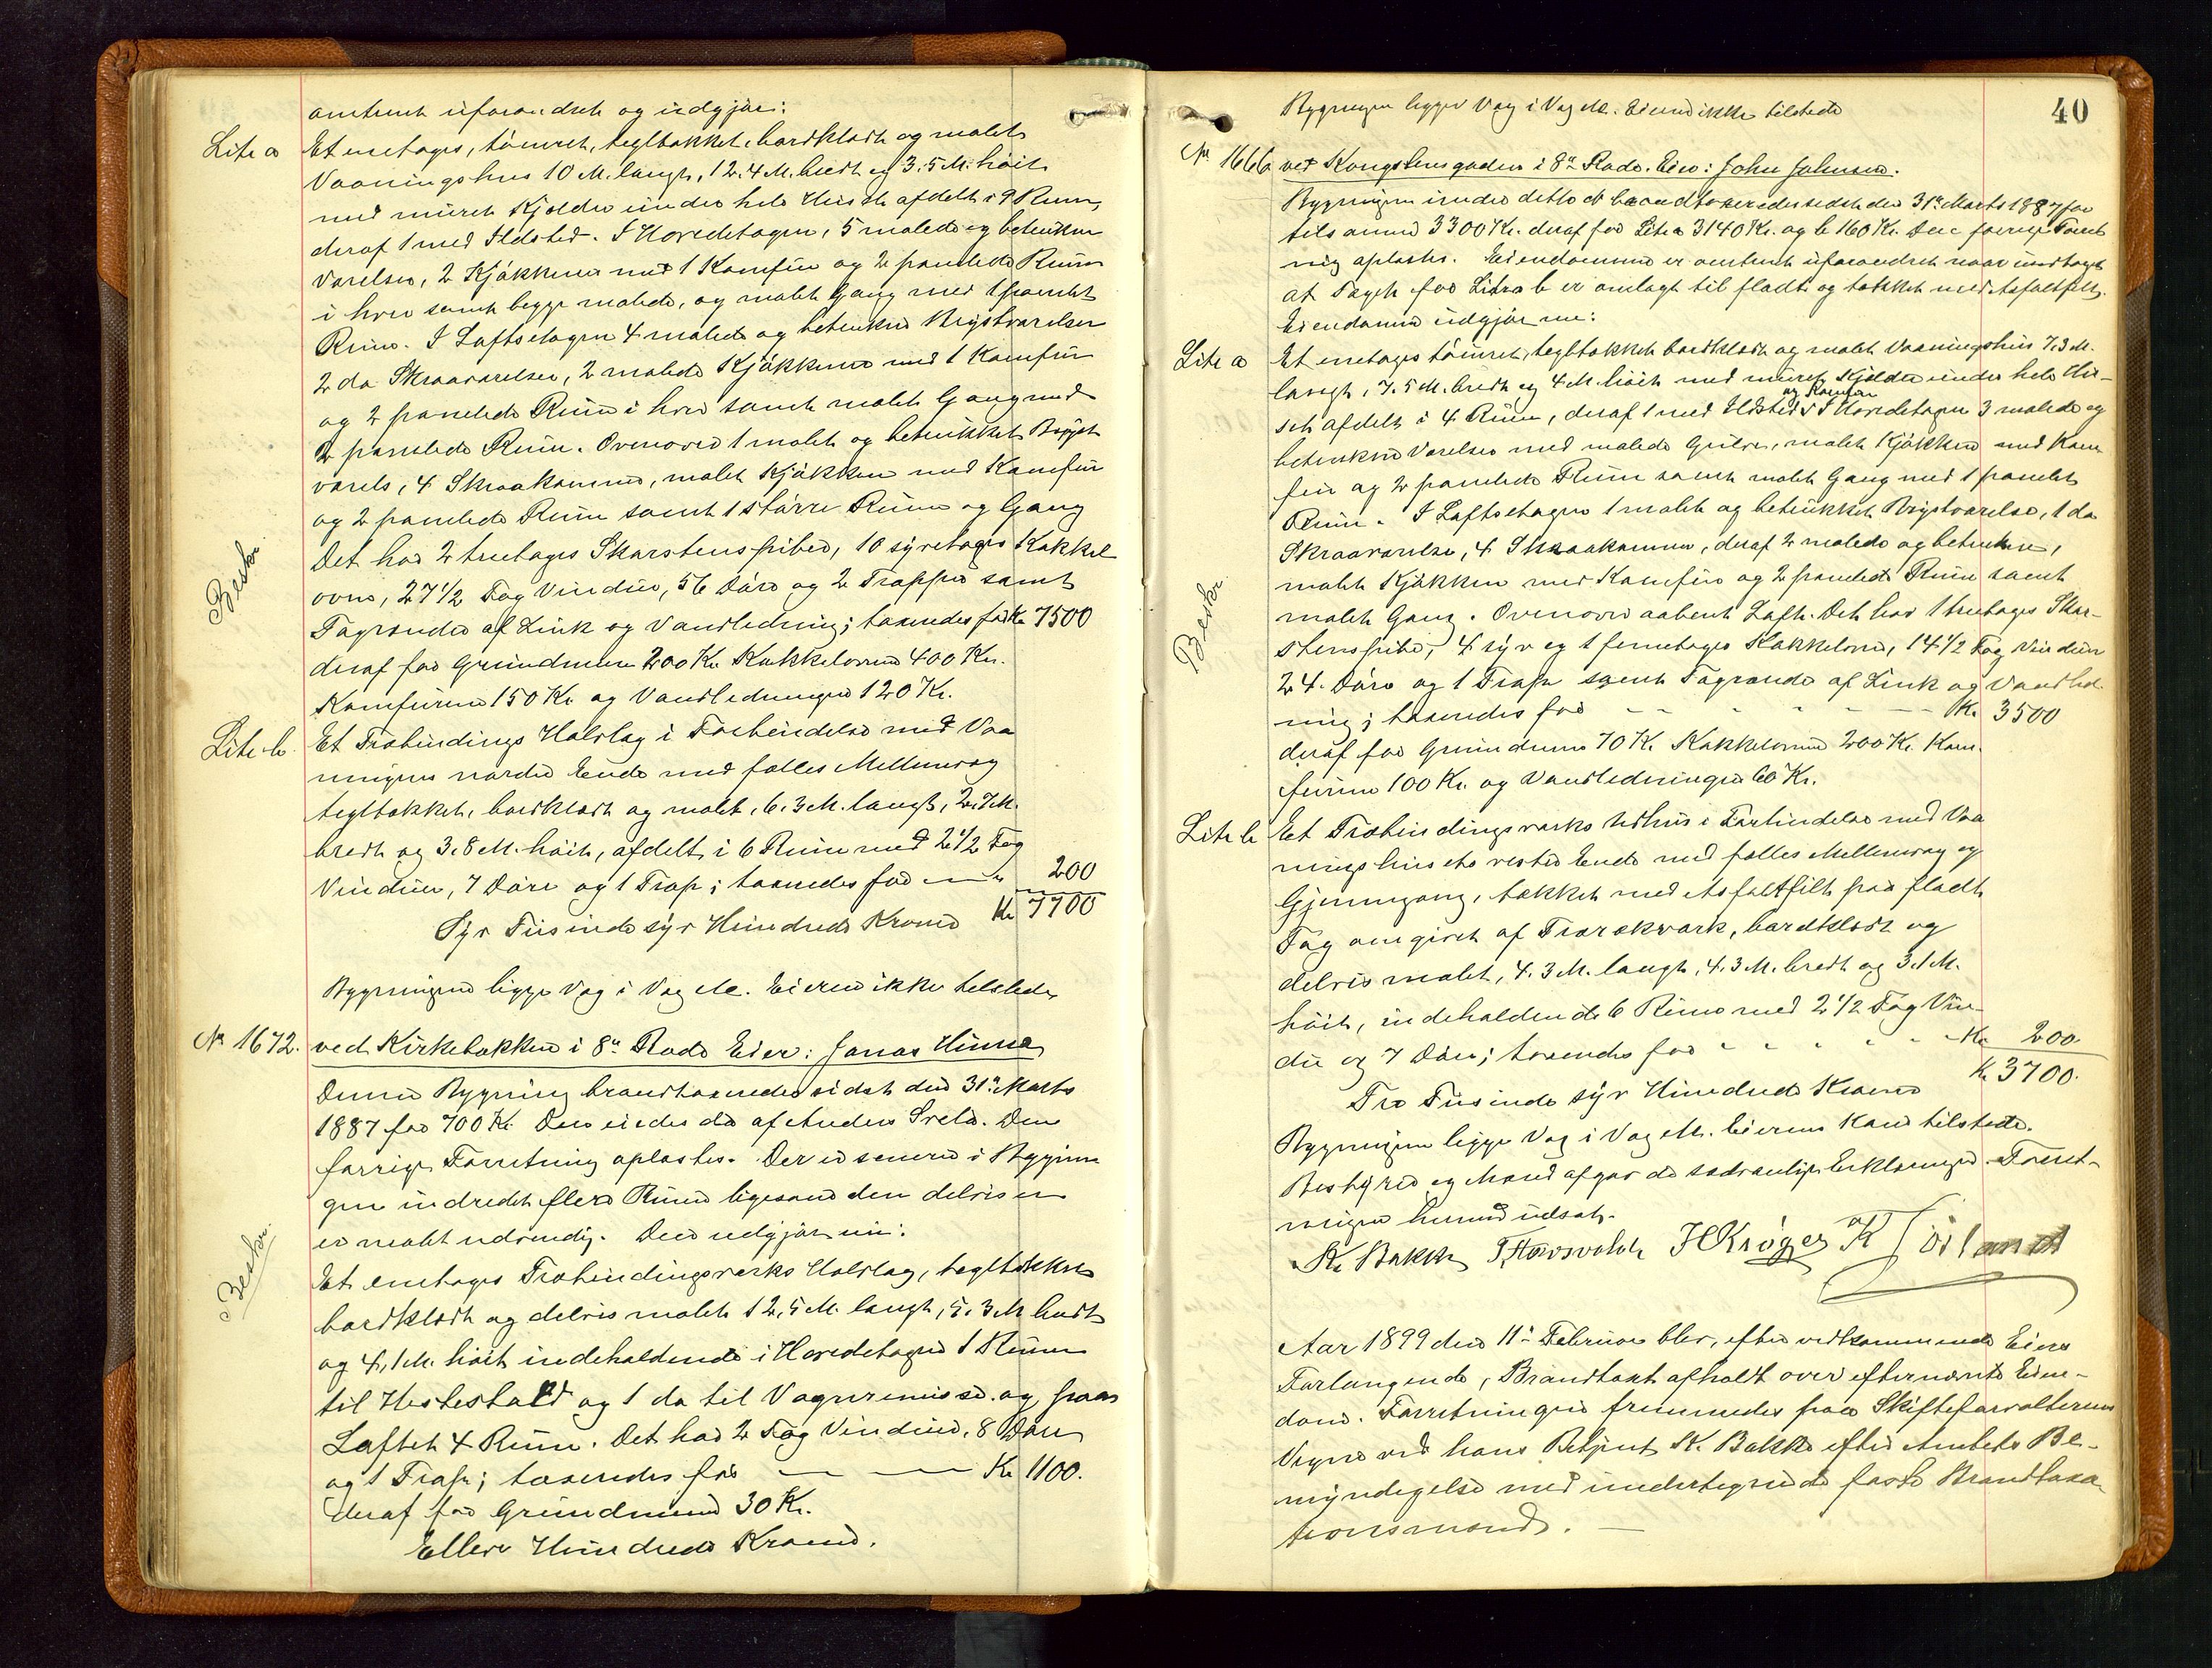 omtrent uforandret og udgjør:
Litr a Et enetages, tømret, tegltækket, bordklædt og malet
Vaaningshus 10 M. langt, 12.4 M. bredt og 3.5 M. høit
med muret Kjelder under hele Huset afdelt i 9 Rum,
deraf 1 med Ildsted. I Hovedetagen, 5 malede og betrukne
Værelser, 2 Kjøkkener med 1 Komfur og 2 panelede Rum
i hver samt begge malede, og malet Gang med 1 panelet
Rum. I Loftsetagen 4 malede og betrukne Brystværelser
2 do Skraaværelser, 2 malede Kjøkkener med 1 Komfur
og 2 panelede Rum i hver samt malet Gang med
2 panelede Rum. Ovenover 1 malet og betrukket Bryst
værels, 4 Skraakamre, malet Kjøkken med Komfur
og 2 panelede Rum samt 1 større Rum og Gang
Det har 2 treetages Skorstenspiber, 10 syretages Kakkel
Beskr.
ovne, 27 1/2 Fag Vinduer, 56 Døre og 2 Trapper samt
Tagrender af Zink og Vandledning; taxeredes for Kr 7500
deraf for Grundmuren 200 Kr. Kakkelovnene 400 Kr.
Komfurene 150 Kr. og Vandledningen 120 Kr.
Litr b. Et Træbindings Halvtag i Forbindelse med Vaa
ningens nordre Ende med fælles Mellemvæg
tegltækket, bordklædt og malet, 6.3 M. langt, 2.7 M.
bredt og 3.8 M. høit, afdelt i 6 Rum med 2 1/2 Fag
Vinduer, 7 Døre og 1 Trap; taxeredes for — " 200
Syv Tusinde syv Hundrede Kroner Kr 7700
Bygningen ligger Væg i Væg M. Eieren ikke tilstede
No 1672. ved Kirkebakken i 8de Rode Eier: Jonas Hinna
Denne Bygning brandtaxeredes sidst den 31te Marts
1887 for 700 Kr. Den eiedes da af Anders Svela. Den
forrige Forretning oplæstes. Der er senere i Bygnin
gen indredet flere Rum ligesom den delvis er
er malet udvendig. Den udgjør nu:
Beskr.
Et enetages Træbindingsverks Halvtag, tegltækket
bordklædt og delvis malet 12,5 M. langt, 5.3 M bredt
og 4,1 M. høit indeholdende i Hovedetagen 1 Rum
til Hestestald og 1 do til Vognremisse og paa
Loftet 4 Rum. Det har 2 Fag Vinduer, 8 Døre
og 1 Trap; taxeredes for — — Kr 1100.
deraf for Grundmuren 30 Kr.
Elleve Hundrede Kroner.
40
Bygningen ligger Væg i Væg M. Eieren ikke tilstede
No 1666 ved Kongstensgaden i 8de Rode. Eier: John Johnsen.
Bygningen under ditto No brandtaxeredes sidst den 31te Marts 1887 for
tilsammen 3300 Kr. deraf for Litr a 3140 Kr. og b 160 Kr. Den forrige Forret
ning oplæstes. Eiendommen er omtrent uforandret naar undtages
at Taget for Litra b er omlagt til fladt og tækket med Asfaltfilt.
Eiendommen udgjør nu:
Litr a Et enetages tømret, tegltækket bordklædt og malet Vaaningshus 7.3 M.
langt, 7.5 M. bredt og 4 M. høit med muret Kjelder under hele Hu-
og Komfur
set afdelt i 4 Rum, deraf 1 med Ildsted. I Hovedetagen 3 malede og
betrukne Værelser med malede Gulve, malet Kjøkken med Kom
fur og 2 panelede Rum samt malet Gang med 1 panelet
Rum. I Loftsetagen 1 malet og betrukket Brystværelse, 1 do
Skraaværelse, 4 Skraakamre, deraf 2 malede og betrukne,
malet Kjøkken med Komfur og 2 panelede Rum samt
Beskr.
malet Gang. Ovenover aabent Loft. Det har 1 treetages Skor-
stenspibe, 4 syv og 1 femetages Kakkelovne, 14 1/2 Fag Vinduer
24 Døre og 1 Trap samt Tagrende af Zink og Vandled-
ning; taxeredes for - - - - Kr. 3500
deraf for Grundmuren 70 Kr. Kakkelovnene 200 Kr. Kom-
furene 100 Kr. og Vandledningen 60 Kr.
Litr b Et Træbindingsværks Udhus i Forbindelse med Vaa
ningshusets vestre Ende med fælles Mellemvæg og
Gjennemgang, tækket med Asfaltfilt paa fladt
Tag omgivet af Træverkværk, bordklædt og
delvis malet, 4.3 M. langt, 4.3 M. bredt og 3.1 M.
høit, indeholdende 6 Rum med 2 1/2 Fag Vin-
due og 7 Døre; taxeredes for - - - - Kr. 200.
Tre Tusinde syv Hundrede Kroner K. 3700.
Bygningen ligger Væg i Væg M. Eierens Kone tilstede.
Bestyrer og Mænd afgav de sædvanlige Erklæringer. Forret-
ningen hermed udsat.
K. Bakke T. Hausvoldt H Krøger K Soiland
Aar 1899 den 11te Februar blev, efter vedkommende Eieres
Forlangende, Brandtaxt afholdt over efternævnte Eien-
dom. Forretningen fremmedes paa Skifteforvalterens
Vegne ved hans Betjent K. Bakke efter Amtets Be-
myndigelse med undertegnede faste Brandtaxa
tionsmænd. —